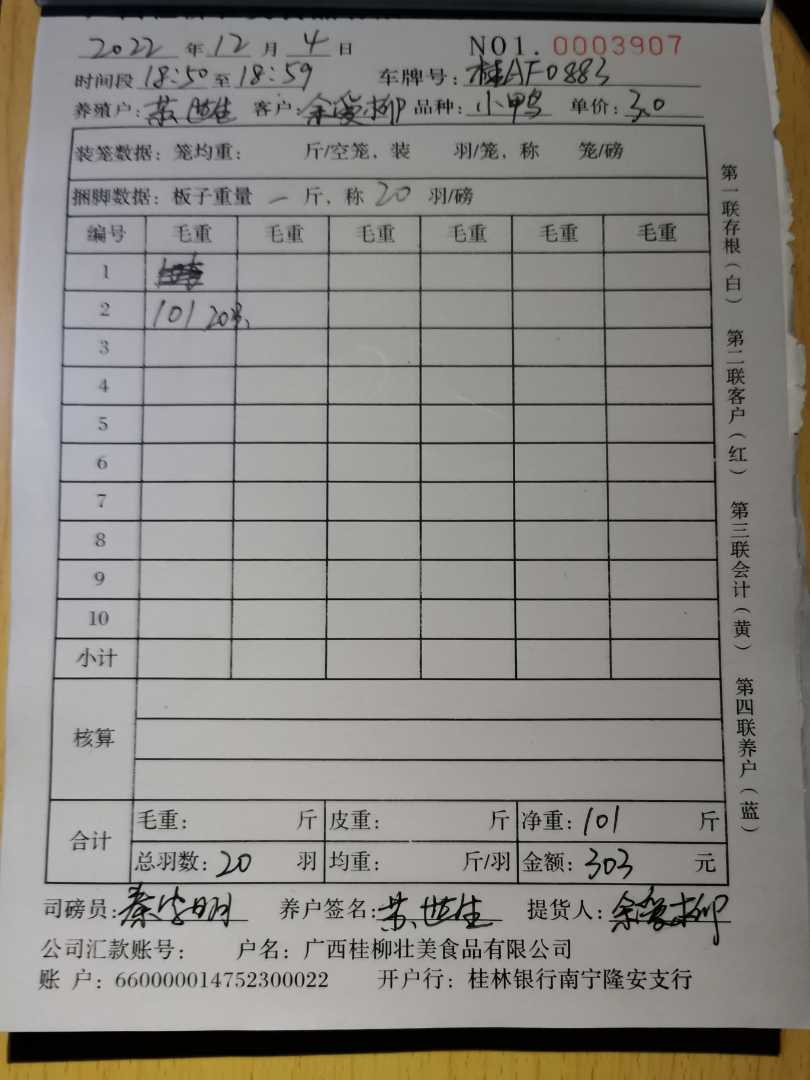 2022 年 12 月 4 日 NO1. 0003907
时间段 18:50 至 18:59 车牌号: 桂AF0883
养殖户: 苏世生 客户: 余爱柳 品种: 小鸭 单价: 3.0
装笼数据: 笼均重: 斤/空笼, 装 羽/笼, 称 笼/磅
捆脚数据: 板子重量 一 斤, 称 20 羽/磅
编号 毛重 毛重 毛重 毛重 毛重 毛重
1
2 101 20只
3
4
5
6
7
8
9
10
小计
核算
合计 毛重: 斤 皮重: 斤 净重: 101 斤
总羽数: 20 羽 均重: 斤/羽 金额: 303 元
司磅员: 养户签名: 苏世生 提货人: 余爱柳
公司汇款账号: 户名: 广西桂柳壮美食品有限公司
账 户: 660000014752300022 开户行: 桂林银行南宁隆安支行
第一联存根(白) 第二联客户(红) 第三联会计(黄) 第四联养户(蓝)